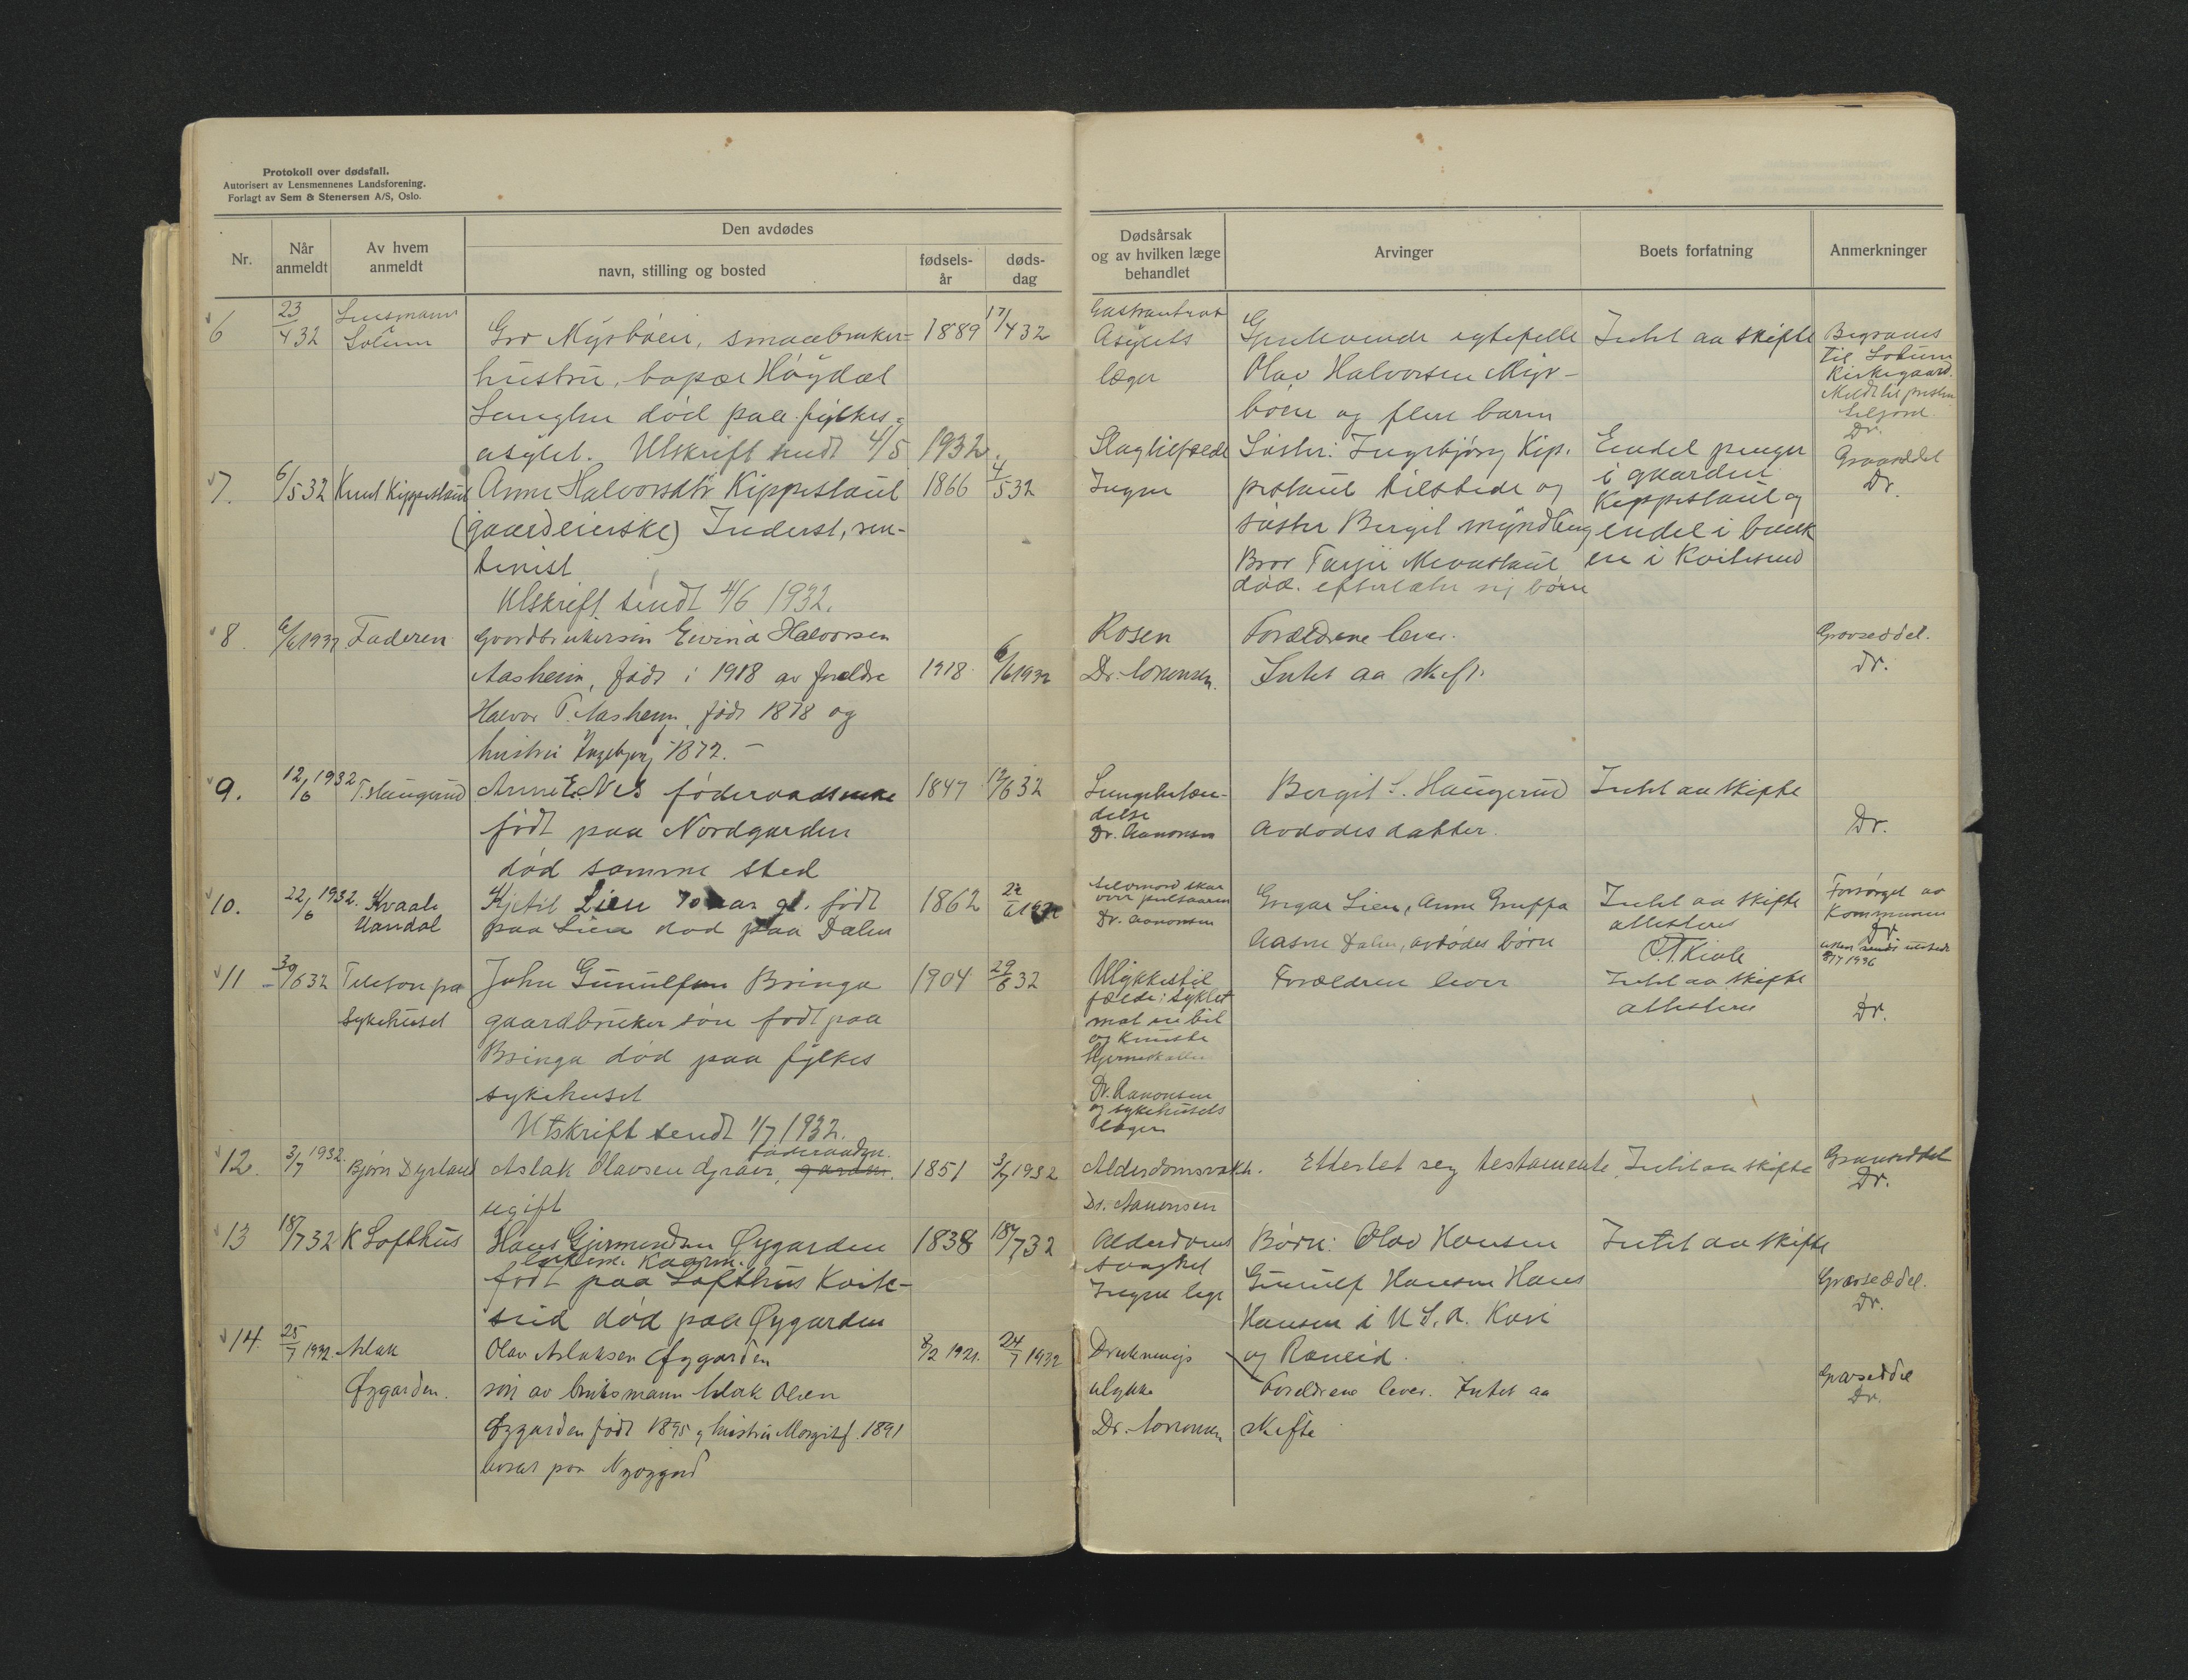 Protokoll over dødsfall.
Autorisert av Lensmennenes Landsforening.
Forlagt av Sem & Stenersen A/S, Oslo.
Nr.
Når anmeldt
Av hvem anmeldt
Den avdødes
navn, stilling og bosted
fødsels-år
døds-dag
Dødsårsak og av hvilken læge behandlet
Arvinger
Boets forfatning
Anmerkninger
6
23/4 32
Lensmann
Solum
Gro Myrbøen, smaabruker-
hustru, bopæl Høydal
død paa fylkes-
asylet. Utskrift sendt 4/5 1932.
1889
17/4 32
Asylets
læger
Gjenlevende egtefelle
Olav Halvorsen Myr-
bøen og flere barn
Intet aa skifte
Begraves
til Solum
Kirkegaard.
Meldt til presten
Seljord.
Dr.
7.
6/5 32
Knut Kippestaul
Anne Halvorsdtr Kippestaul
(gaardeierske) Inderst, ren-
tenist
Utskrift sendt 4/6 1932.
1866
4/5 32
Slagtilfælde
Ingen
Søster: Ingebjørg Kip-
pestaul tilstede og
søster Bergit myndling
Bror Tarjei
død. efterlater sig børn
Endel penger
i gaarden
Kippestaul og
endel i bank
en i Kviteseid
Gravseddel
Dr.
8.
6/6 1932
Faderen
Gaardbrukersøn Eivind Halvorsen
Aasheim, født i 1918 av foreldre
Halvor T. Aasheim, født 1878 og
hustru Ingebjørg 1872. –
1918
6/6 1932
Rosen
Dr. Aanonsen.
Forældrene lever.
Intet aa skift.
Gravseddel.
Dr.
9.
12/6 1932
T. Haugerud
Anne E. Nes føderaadsenke
født paa Nordgarden
død samme sted
1847
12/6 32
Lungebeten-
delse
Dr. Aanonsen
Bergit S. Haugerud
Avdødes datter.
Intet aa skifte
Dr.
10.
22/6 1932.
Kvaale
Uandal
Kjetil Lien 70 aar gl. født
paa Lien død paa Dalen
1862
22/6 1932
Selvmord skar
over pulsaaren
Dr. Aanonsen
Gregar Lien, Anne Gruffa
Aasne Dalen, avdødes børn
Intet aa skifte
attesteres
Forsørget av
Kommunen
Dr.
8/7 1936
11
30/6 32
Telefon fra
sykehuset
John Gunulfsen Bringa
gaardbruker søn født paa
Bringa død paa fylkes
sykehuset
Utskrift sendt 1/7 1932.
1904
29/6 32
Ulykkestil
fælde: syklet
mot en bil
og knuste
Hjerneskallen
Dr. Aanonsen
og sykehusets
læger
Forældrene lever
Intet aa skifte
attesteres
Dr.
12.
3/7 1932.
Bjørn Dyrland
Aslak Olavsen Djraev,
ugift
1851
3/7 1932
Alderdomsvakh.
Dr. Aanonsen
Etterlet seg testamente.
Intet aa skifte
Gravseddel
Dr.
13
18/7 32
K Lofthus
Hans Gjermundsen Øygarden
enkem. Kaarm.
født paa Lofthus Kvite-
seid død paa Øygarden
1838
18/7 32
Alderdoms
svaghet
Ingen lege
Børn: Olav Hansen
Gunulf Hansen Hans
Hansen i U.S.A. Kari
og Raneid.
Intet aa skifte
Gravseddel.
Dr.
14.
25/7 1932.
Aslak
Øygarden.
Olav Aslaksen Øygarden
søn av bruksmann Aslak Olsen
Øygarden født 1895 og hustru Margit f. 1891
bosat paa Nyøygard
8/2 1921.
24/7 1932
Druknings
ulykke
Dr. Aanonsen
Foreldrene lever. Intet aa
skifte
Gravseddel
Dr.